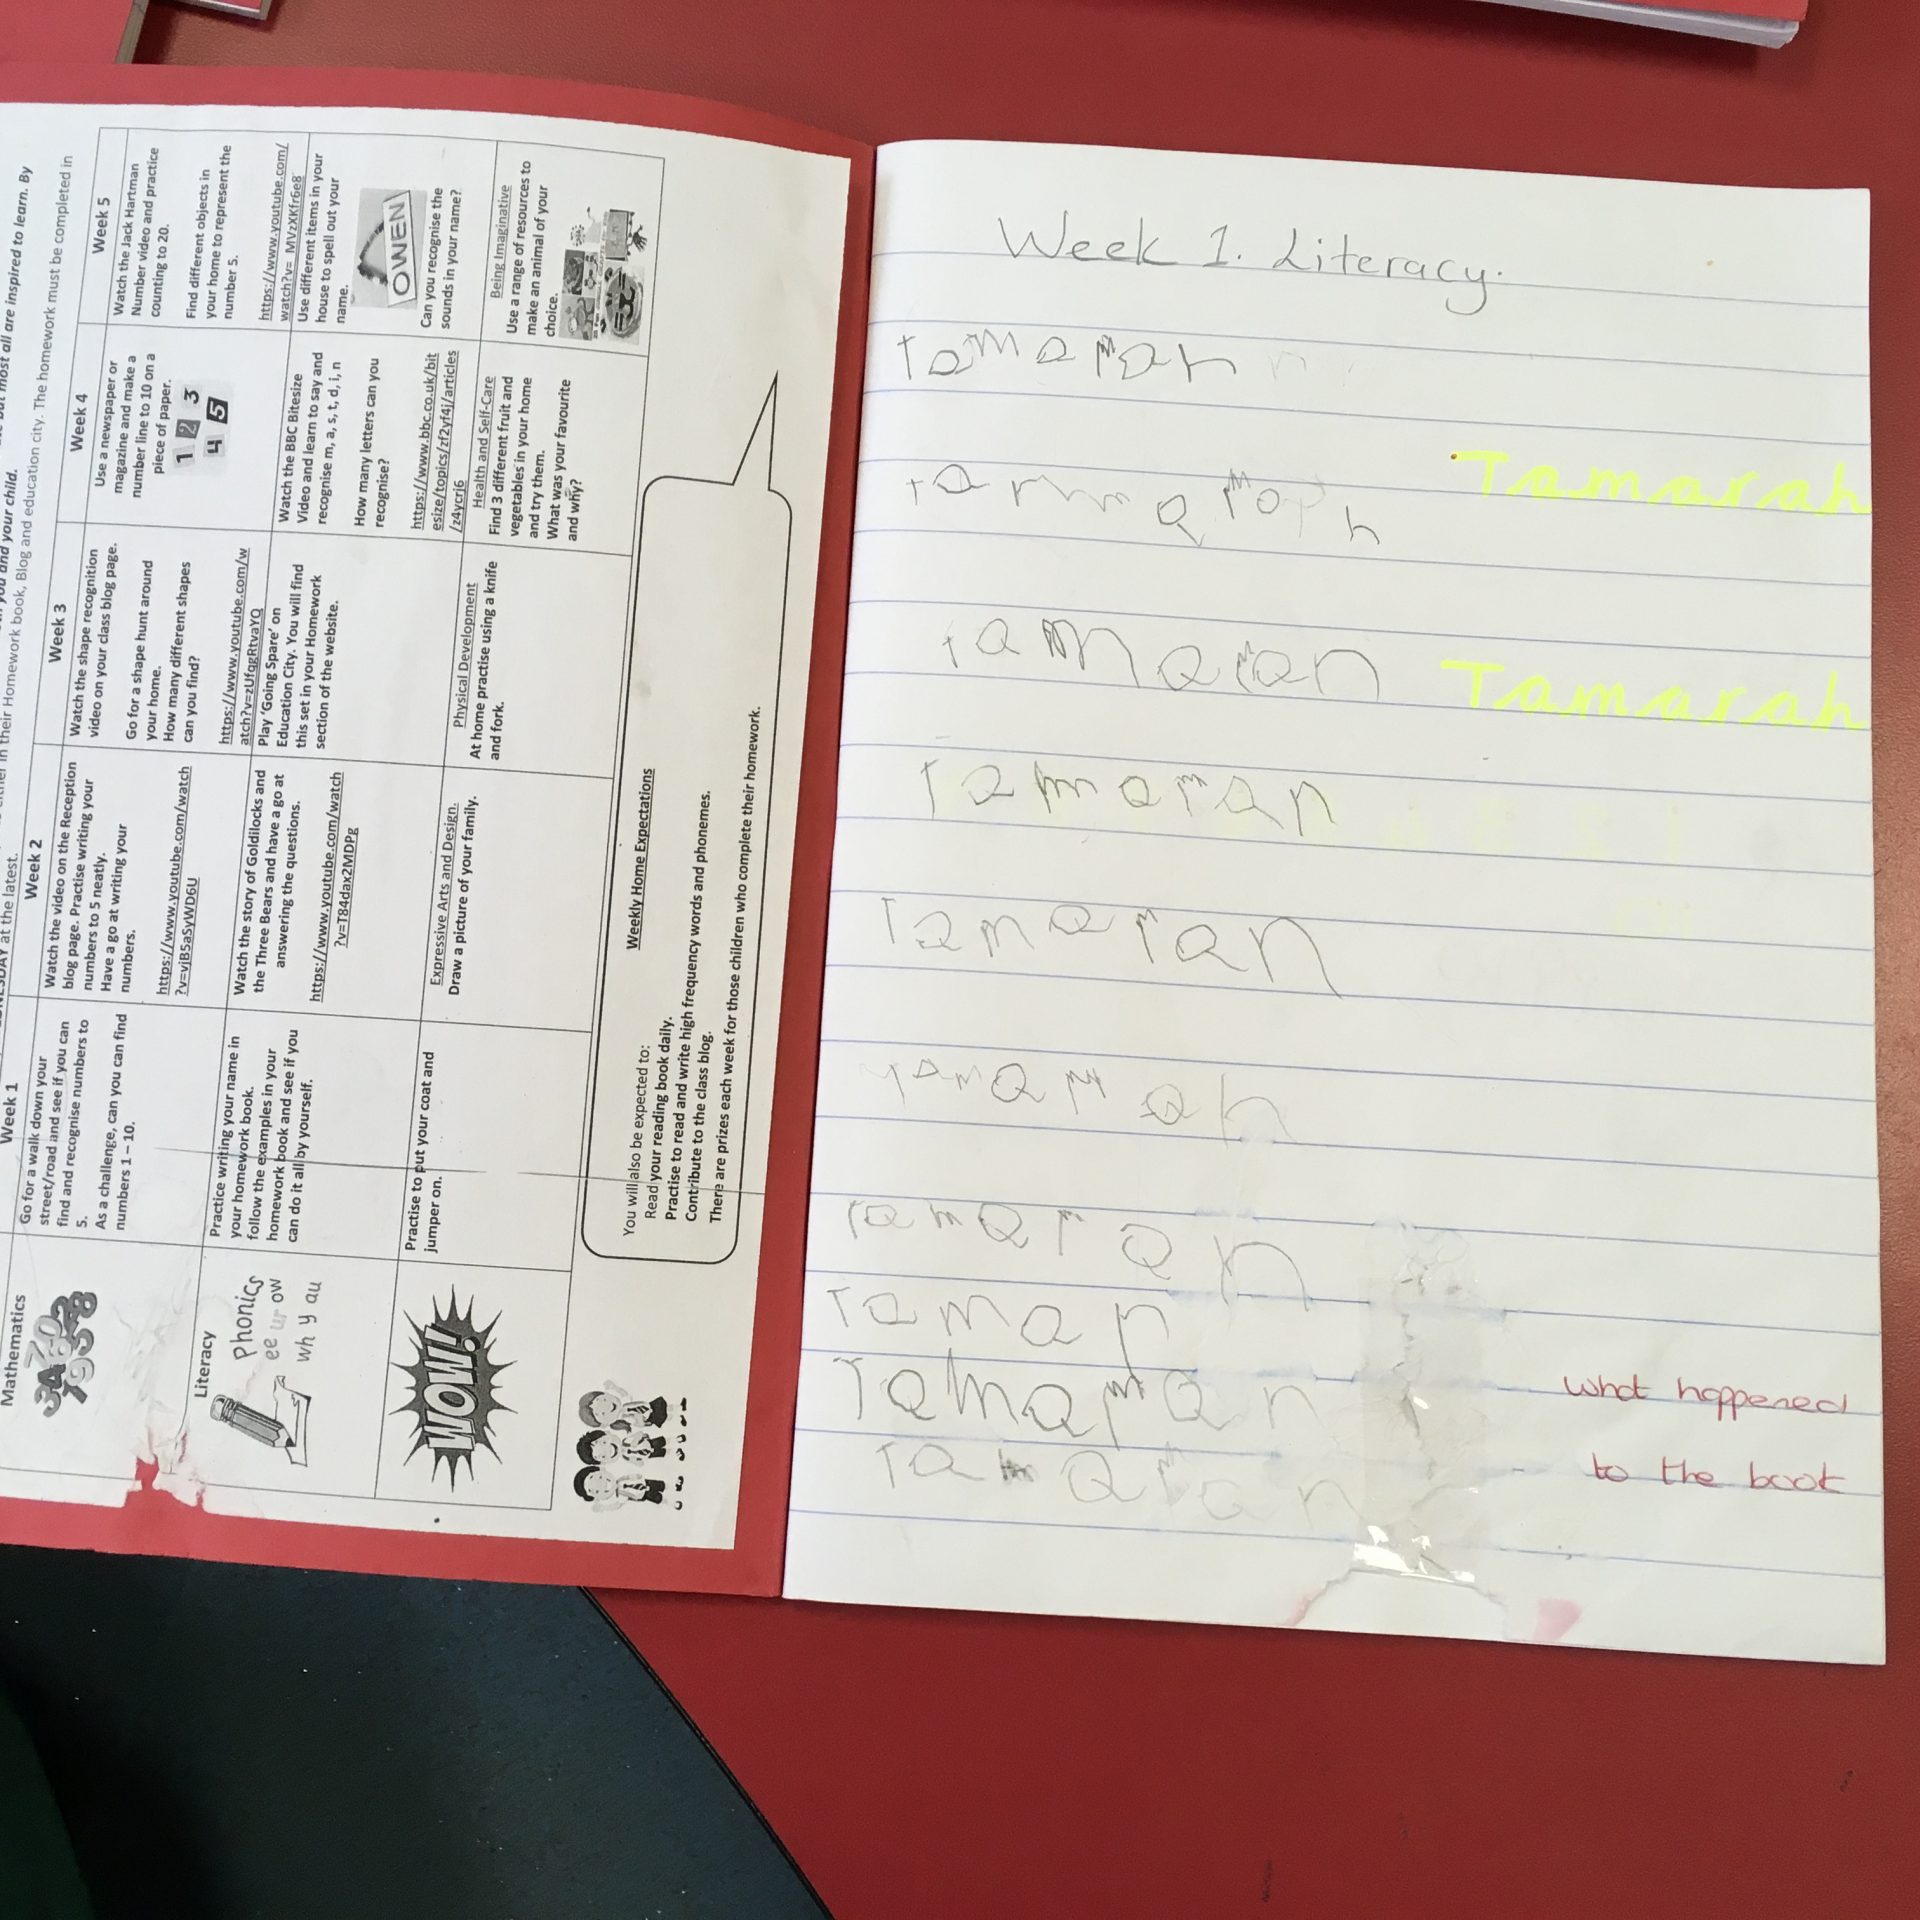 Week 1. Literacy.
Tamarah
Tamarah
Tamaran
Tamarah
Tamaran
Tamaran
Tamarah
Tamaran
Taman
Tamaran
Tamaran
what happened
to the book
most all are inspired to learn. By
you and your child.
in their Homework book, Blog and education city. The homework must be completed in
at the latest.
Week 1
Week 2
Week 3
Week 4
Week 5
Mathematics
Go for a walk down your
street/road and see if you can
find and recognise numbers to
5.
As a challenge, can you can find
numbers 1 – 10.
Watch the video on the Reception
blog page. Practise writing your
numbers to 5 neatly.
Have a go at writing your
numbers.
https://www.youtube.com/watch
?v=vjB5aSyWD6U
Watch the shape recognition
video on your class blog page.
Go for a shape hunt around
your home.
How many different shapes
can you find?
https://www.youtube.com/w
atch?v=zUfqgRtvaYQ
Use a newspaper or
magazine and make a
number line to 10 on a
piece of paper.
1 2 3
4 5
Watch the Jack Hartman
Number video and practice
counting to 20.
Find different objects in
your home to represent the
number 5.
https://www.youtube.com/
watch?v=_MVzXKfr6e8
Literacy
Phonics
ee ur ow
wh y au
Practice writing your name in
your homework book.
follow the examples in your
homework book and see if you
can do it all by yourself.
Watch the story of Goldilocks and
the Three Bears and have a go at
answering the questions.
https://www.youtube.com/watch
?v=T84dax2MDPg
Play 'Going Spare' on
Education City. You will find
this set in your Homework
section of the website.
Watch the BBC Bitesize
Video and learn to say and
recognise m, a, s, t, d, i, n
How many letters can you
recognise?
https://www.bbc.co.uk/bit
esize/topics/zf2yf4j/articles
/z4ycrj6
Use different items in your
house to spell out your
name.
OWEN
Can you recognise the
sounds in your name?
WOW!
Practise to put your coat and
jumper on.
Expressive Arts and Design.
Draw a picture of your family.
Physical Development
At home practise using a knife
and fork.
Health and Self-Care
Find 3 different fruit and
vegetables in your home
and try them.
What was your favourite
and why?
Being Imaginative
Use a range of resources to
make an animal of your
choice.
Weekly Home Expectations
You will also be expected to:
Read your reading book daily.
Practise to read and write high frequency words and phonemes.
Contribute to the class blog.
There are prizes each week for those children who complete their homework.